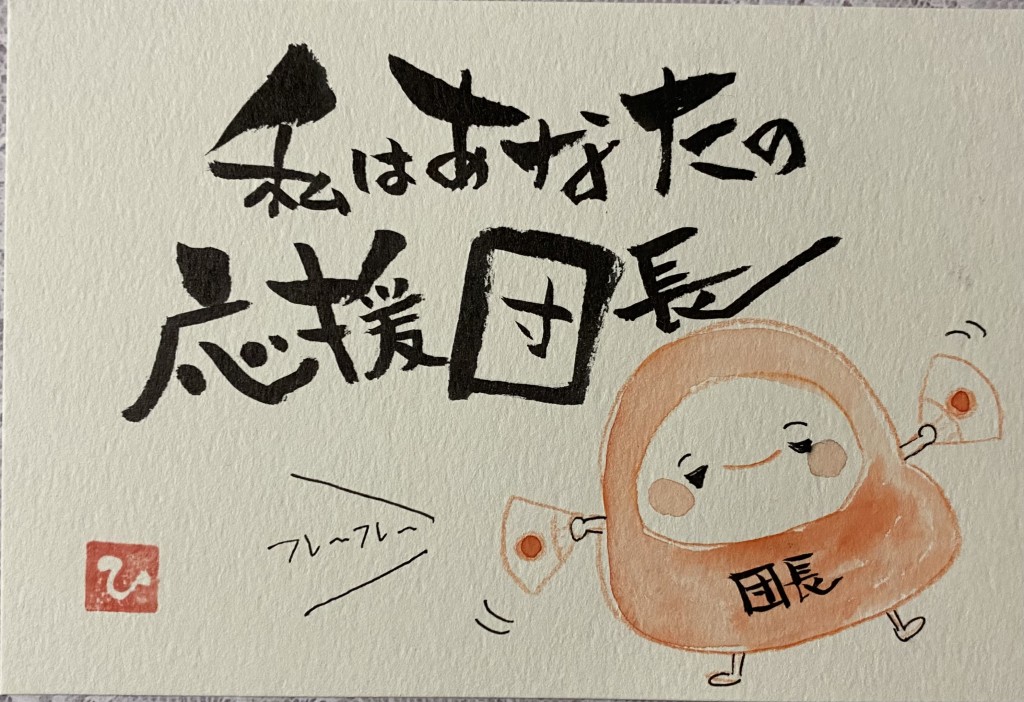 私はあなたの
応援団長
フレ〜フレ〜
団長
ひ